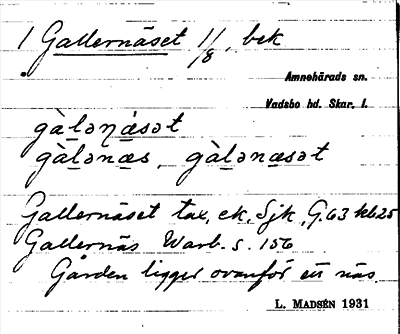 1 Gallernäset 1/8, bek
Amnehärads sn.
Vadsbo hd. Skar. l.
gàḻəṉá̱sət
gàḻənæ̱s, gàḻənæ̱sət
Gallernäset tax, ek, Sjk, G.63 kb25
Gallernäs Warb. s. 156
Gården ligger ovanför ett näs.
L. MADSÉN 1931